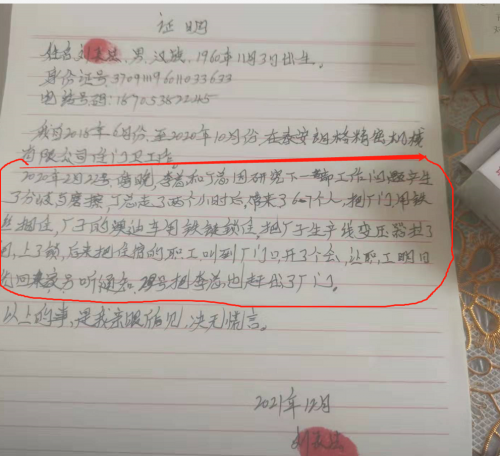 证明
姓名刘,男,汉族,1960年11月3日出生。
身份证号:370911196011033633
电话号码:18705382245
我自2018年6月份,至2020年10月份,在泰安格精密机械
有限公司任门卫工作。
2020年2月22号,晚,李总和丁总因研究下一工作问题产生
了分歧与磨擦,丁总走了两个小时后,带来了6-7个人,把厂门用铁
丝拧住,厂子的车用铁链锁住,把厂子生产线变压器拉了
闸,上了锁,后来把住宿的职工叫到厂门口,开了个会,让职工明日
回家听通知,把李总也赶出了厂门。
以上的事,是我亲眼所见,决无慌言。
2021年12月
刘